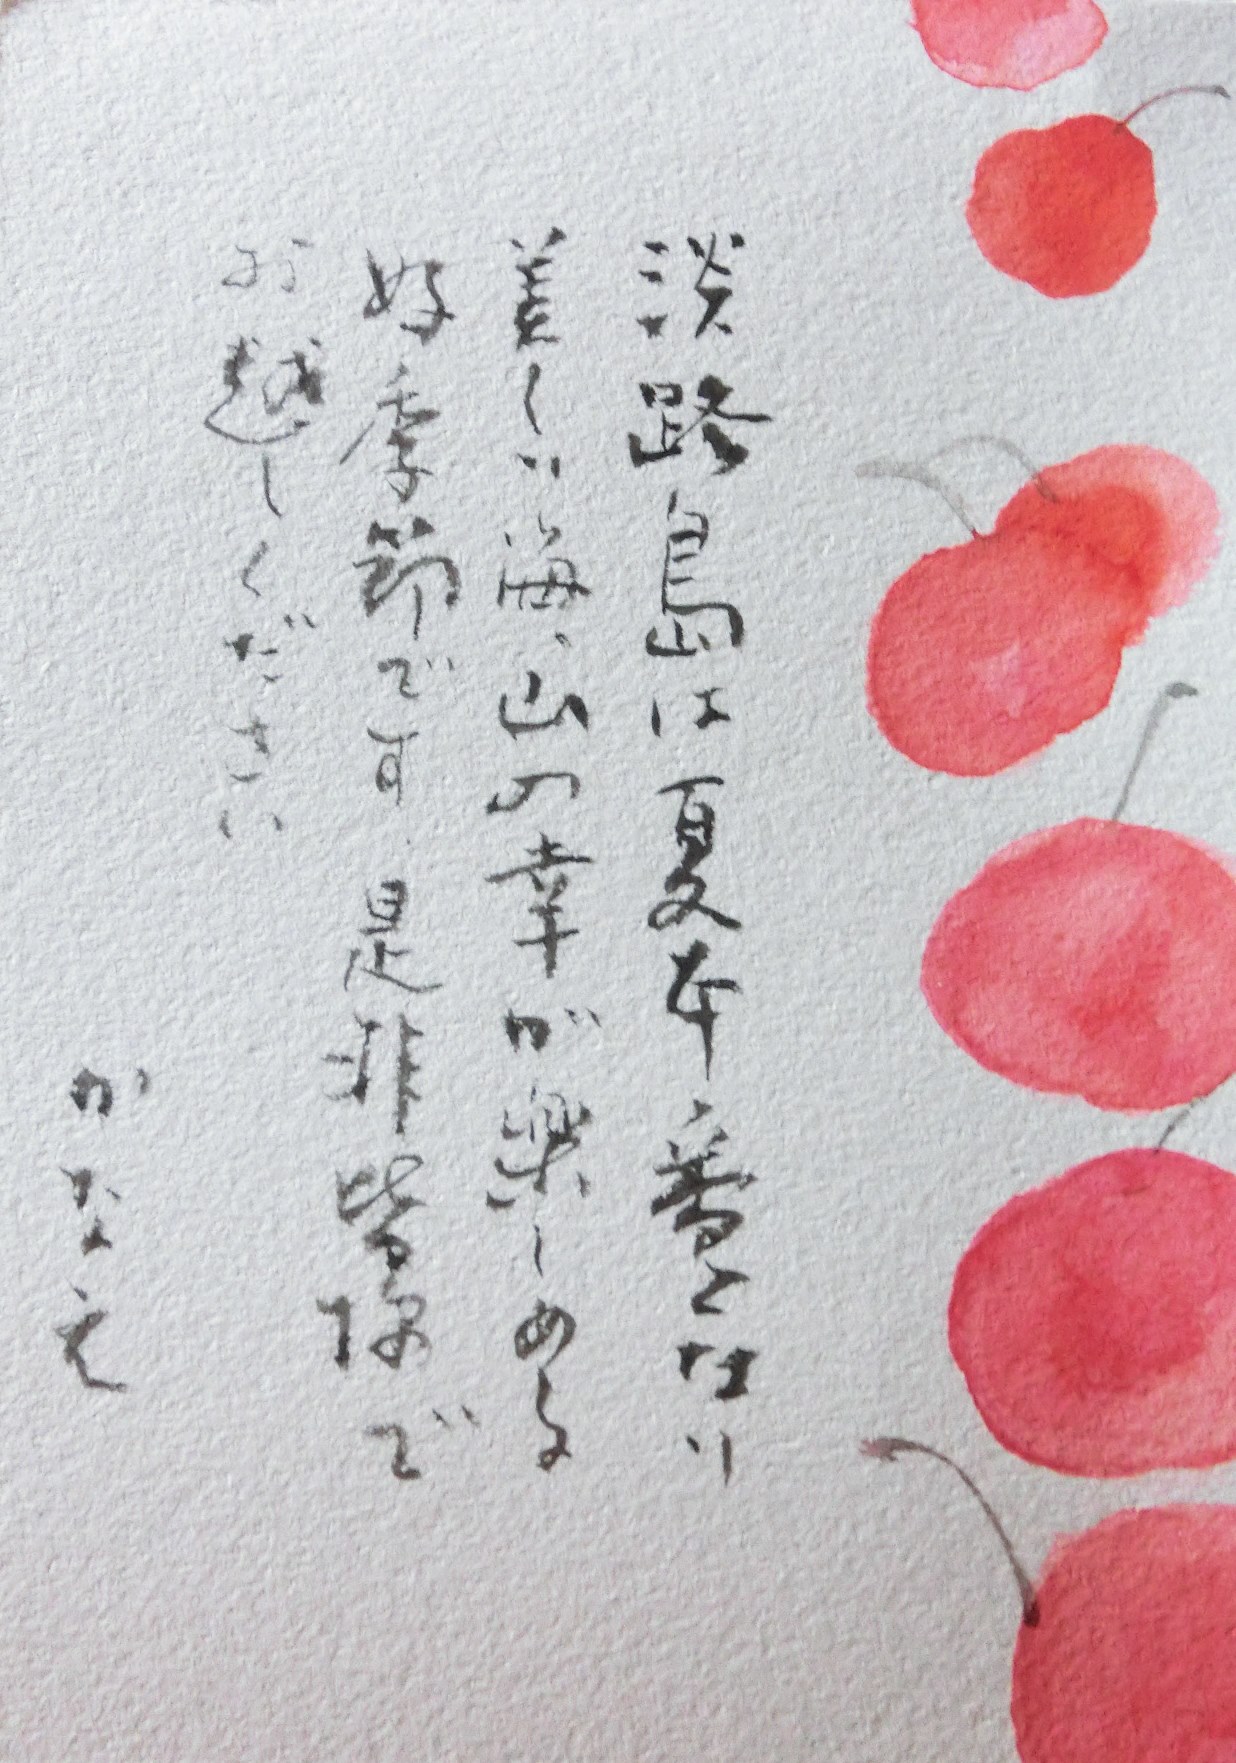 淡路島は夏本番となり
美しい海、山の幸が楽しめる
好季節です、是非皆様で
お越しください
かなえ